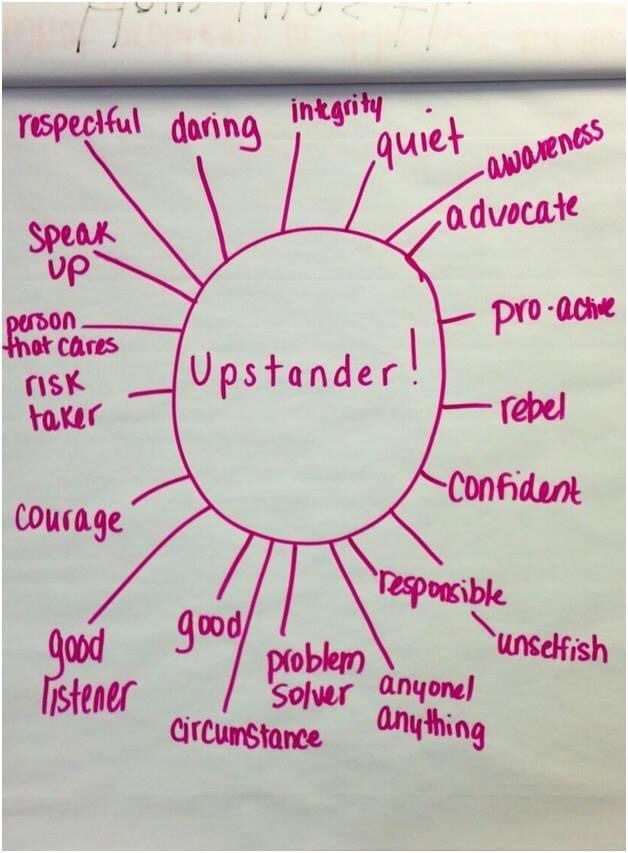 respectful
daring
integrity
quiet
awareness
advocate
speak
up
pro-active
person
that cares
Upstander!
risk
taker
rebel
confident
courage
responsible
unselfish
good
listener
good
problem
solver
anyone/
anything
circumstance